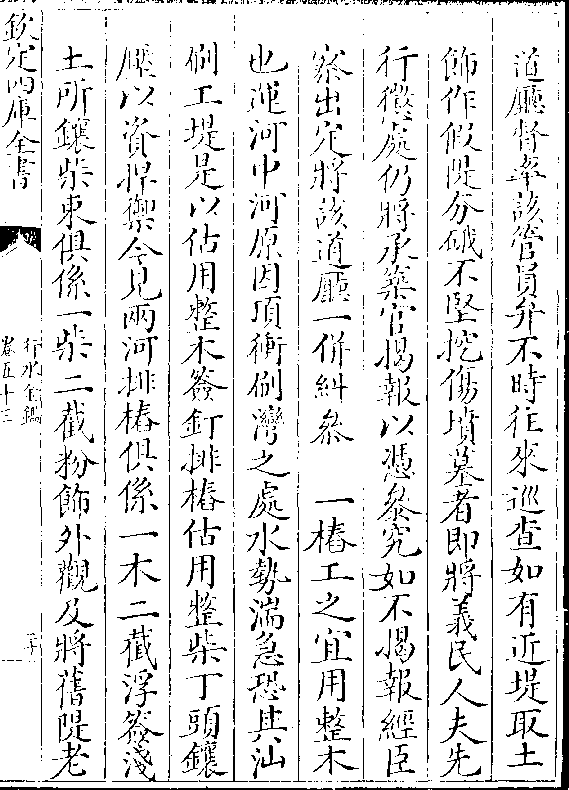 道廳督率該管員弁不時往來巡查如有近堤取土
飾作假隄夯硪不堅挖傷墳墓者即將義民人夫先
行懲處仍將承築官揭報以憑叅究如不揭報經臣
察出定將該道廳一併糾叅　一樁工之宜用整木
也運河中河原因頂衝刷灣之處水勢湍急恐其汕
刷工堤是以估用整木簽釘排樁估用整柴丁頭鑲
壓以資捍禦今見兩河排樁俱係一木二截浮簽淺
土所鑲柴束俱係一柴二截粉飾外觀及將舊隄老
欽定四庫全書
行水金鑑
卷五十三